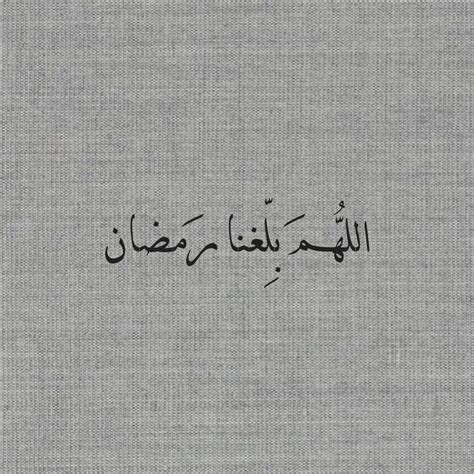 اللهُمَ بلِّغنا رمَضان